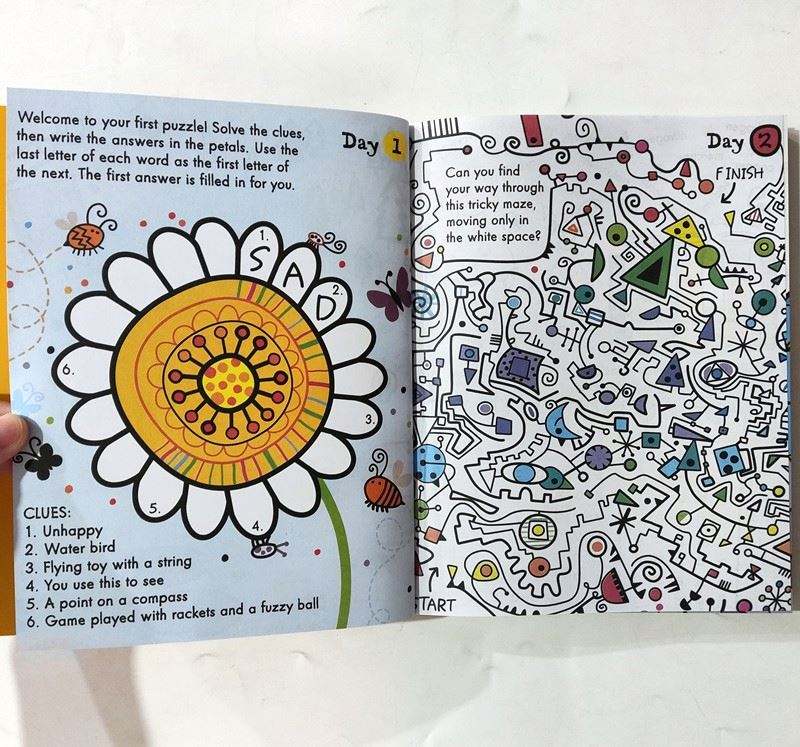 Welcome to your first puzzle! Solve the clues,
then write the answers in the petals. Use the
last letter of each word as the first letter of
the next. The first answer is filled in for you.
Day 1
1.
S A D
2.
3.
4.
5.
6.
CLUES:
1. Unhappy
2. Water bird
3. Flying toy with a string
4. You use this to see
5. A point on a compass
6. Game played with rackets and a fuzzy ball
Day 2
FINISH
Can you find
your way through
this tricky maze,
moving only in
the white space?
TART